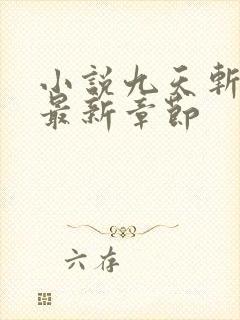 小説九天斬
最新章節
六存